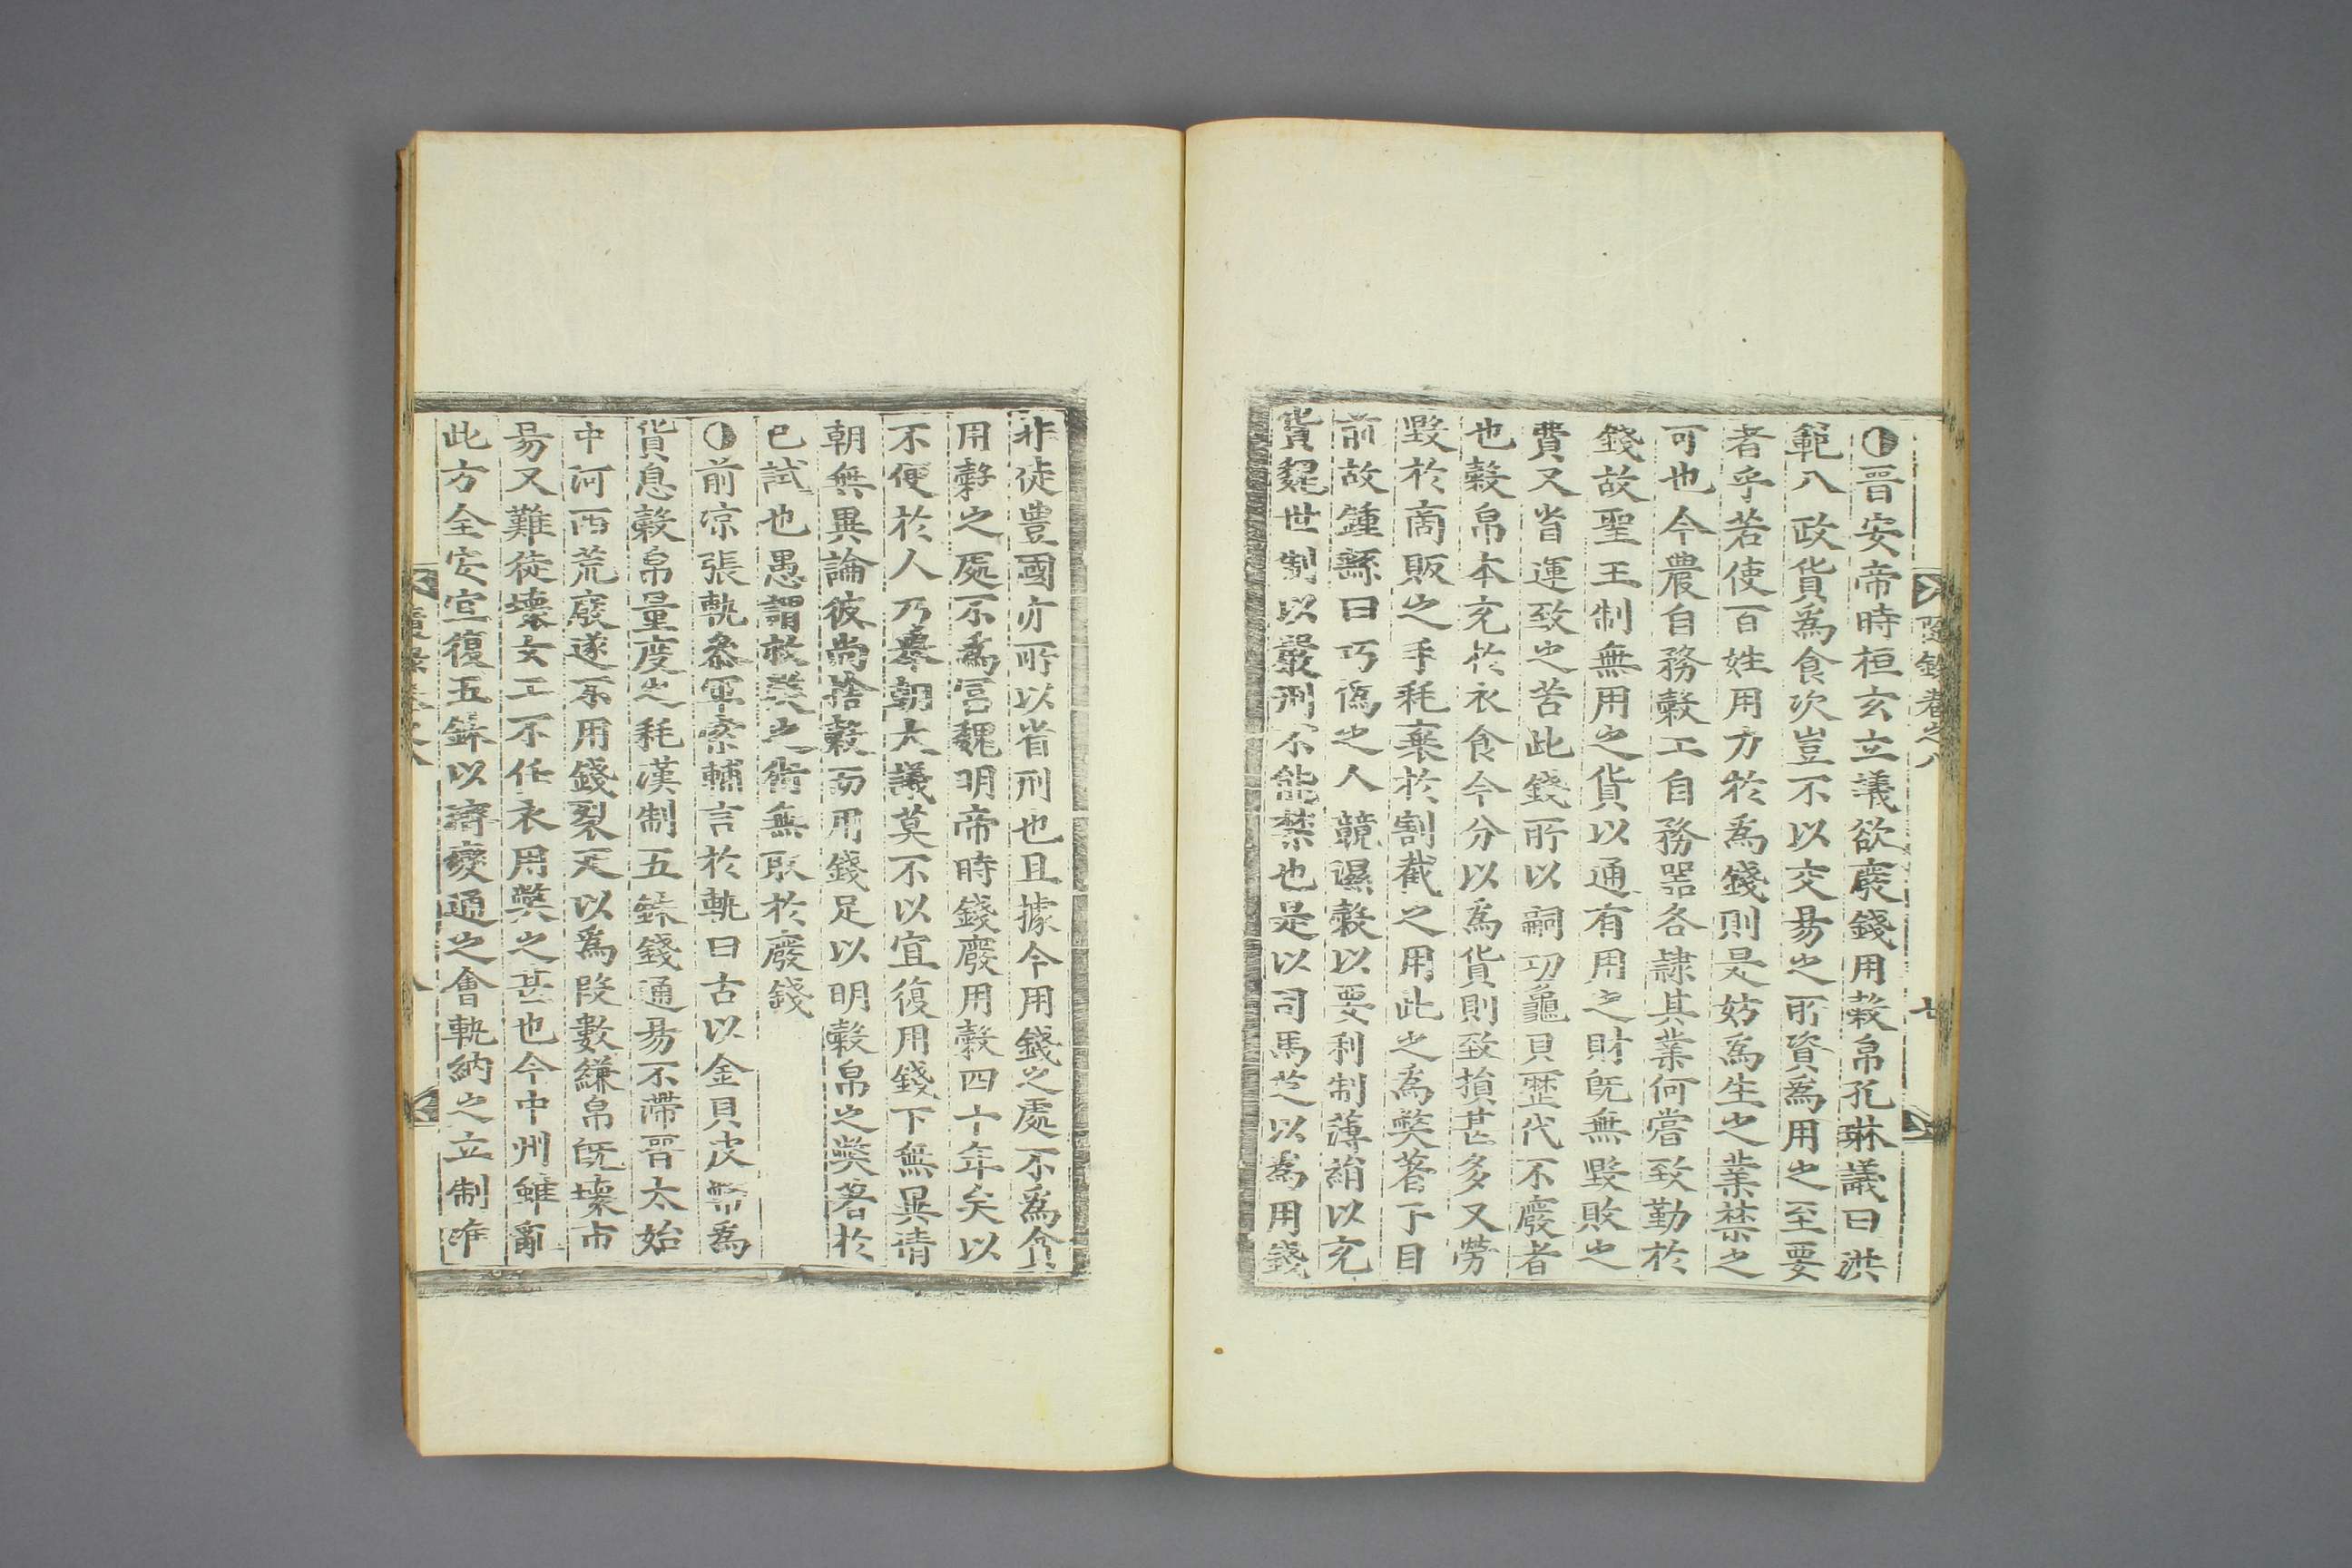 隨錄卷之八　七
○晉安帝時桓玄立議欲廢錢用穀帛孔琳議曰洪
範八政貨爲食次豈不以交易之所資爲用之至要
者乎若使百姓用力於爲錢則是妨爲生之業禁之
可也今農自務穀工自務器各隷其業何嘗致勤於
錢故聖王制無用之貨以通有用之財旣無毀敗之
費又省運致之苦此錢所以嗣功龜貝歷代不廢者
也穀帛本充於衣食今分以爲貨則致損甚多又勞
毀於商販之手耗棄於割截之用此之爲獘著下目
前故鍾繇曰巧僞之人競濕穀以要利制薄絹以充
貨魏世制以嚴刑不能禁也是以司馬芝以爲用錢
非徒豊國亦所以省刑也且據今用錢之處不爲貪
用穀之處不爲富魏明帝時錢廢用穀四十年矣以
不便於人乃擧朝大議莫不以宜復用錢下無異情
朝無異論彼尚捨穀而用錢足以明穀帛之獘著於
已試也愚謂救獘之術無取於廢錢
○前凉張軌叅軍索輔言於軌曰古以金貝皮幣爲
貨息穀帛量度之耗漢制五銖錢通易不滯晉太始
中河西荒廢遂不用錢裂疋以爲段數縑帛旣壞市
易又難徒壞女工不任衣用獘之甚也今中州雖亂
此方全安宜復五銖以濟變通之會軌納之立制准
隨錄卷之八　八